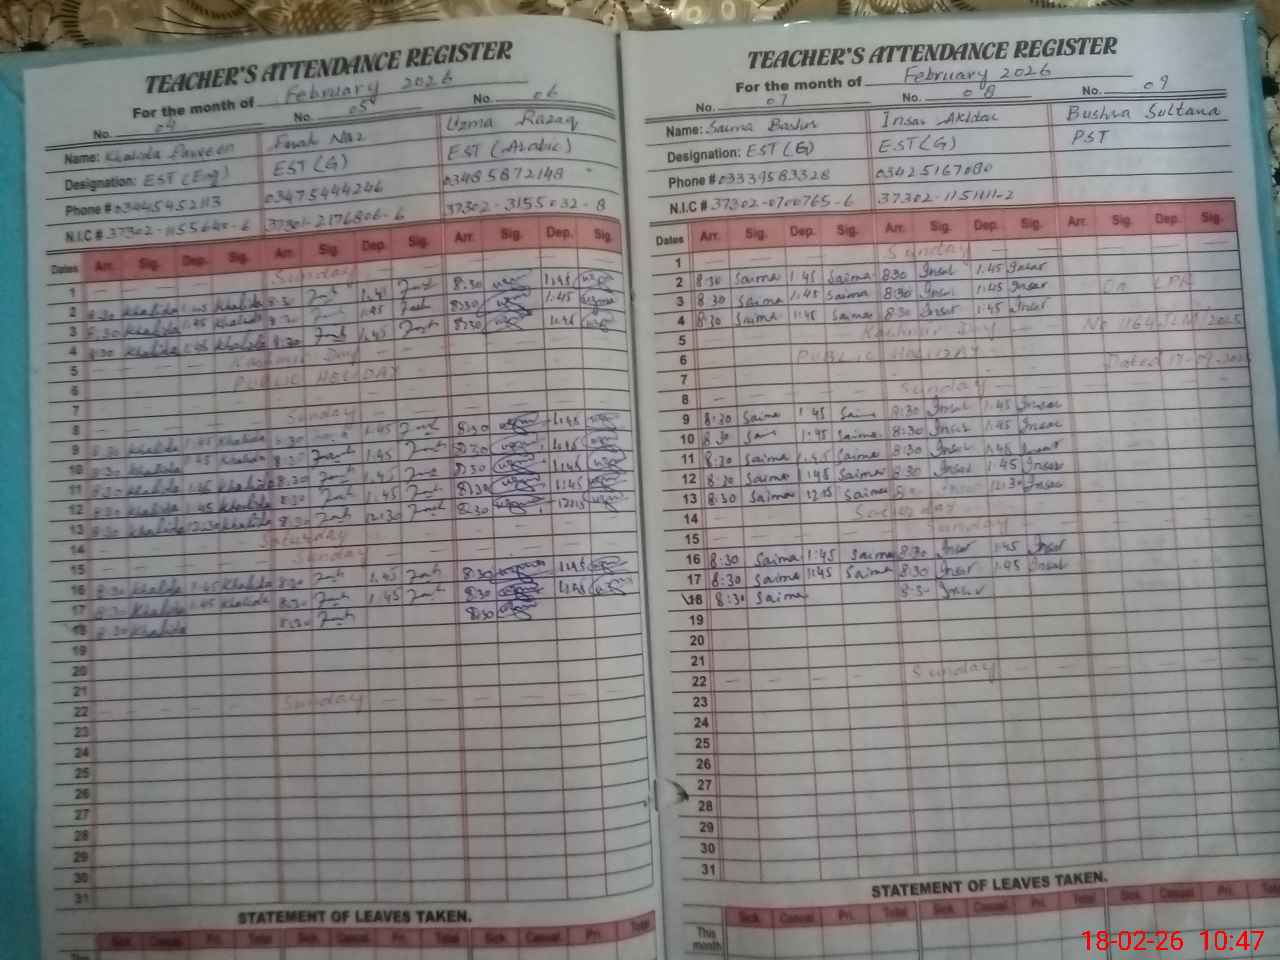 TEACHER'S ATTENDANCE REGISTER
For the month of February 2026
No. 04 No. 05 No. 06
Name: Khalida Parveen Farah Naz Uzma Razaq
Designation: EST (Eng) EST (G) EST (Arabic)
Phone # 03445452113 03475444246 03485872148
N.I.C # 37302-1155640-6 37301-2176806-6 37302-3155032-8
Dates Arr. Sig. Dep. Sig. Arr. Sig. Dep. Sig. Arr. Sig. Dep. Sig.
1 Sunday
2 8:30 Khalida 1:45 Khalida 8:30 1:45 8:30 1:45
3 8:30 Khalida 1:45 Khalida 8:30 1:45 8:30 1:45
4 8:30 Khalida 1:45 Khalida 8:30 1:45 8:30 1:45
5 Kashmir Day
6 PUBLIC HOLIDAY
7
8 Sunday
9 8:30 Khalida 1:45 Khalida 8:30 1:45 8:30 1:45
10 8:30 Khalida 1:45 Khalida 8:30 1:45 8:30 1:45
11 8:30 Khalida 1:45 Khalida 8:30 1:45 8:30 1:45
12 8:30 Khalida 1:45 Khalida 8:30 1:45 8:30 1:45
13 8:30 Khalida 12:30 Khalida 8:30 12:30 8:30
14 Saturday
15 Sunday
16 8:30 Khalida 1:45 Khalida 8:30 1:45 8:30 1:45
17 8:30 Khalida 1:45 Khalida 8:30 1:45 8:30 1:45
18 8:30 Khalida 8:30 8:30
19
20
21
22 Sunday
23
24
25
26
27
28
29
30
31
STATEMENT OF LEAVES TAKEN.
Sick Casual Pri. Total Sick Casual Pri. Total Sick Casual Pri. Total
TEACHER'S ATTENDANCE REGISTER
For the month of February 2026
No. 07 No. 08 No. 09
Name: Saima Bashir Insar Akhtar Bushra Sultana
Designation: EST (G) EST (G) PST
Phone # 03339583328 03425167080
N.I.C # 37302-0700765-6 37302-1151111-2
Dates Arr. Sig. Dep. Sig. Arr. Sig. Dep. Sig. Arr. Sig. Dep. Sig.
1 Sunday
2 8:30 Saima 1:45 Saima 8:30 Insar 1:45 Insar
3 8:30 Saima 1:45 Saima 8:30 Insar 1:45 Insar On LPR
4 8:30 Saima 1:45 Saima 8:30 Insar 1:45 Insar
5 Kashmir Day No 1164
6 PUBLIC HOLIDAY
7 Dated 17-09
8 Sunday
9 8:30 Saima 1:45 Saima 8:30 Insar 1:45 Insar
10 8:30 Saima 1:45 Saima 8:30 Insar 1:45 Insar
11 8:30 Saima 1:45 Saima 8:30 Insar 1:45 Insar
12 8:30 Saima 1:45 Saima 8:30 Insar 1:45 Insar
13 8:30 Saima Saima 8:30 Insar 12:30 Insar
14 Saturday
15 Sunday
16 8:30 Saima 1:45 Saima 8:30 Insar 1:45 Insar
17 8:30 Saima 1:45 Saima 8:30 Insar 1:45 Insar
18 8:30 Saima 8:30 Insar
19
20
21
22 Sunday
23
24
25
26
27
28
29
30
31
STATEMENT OF LEAVES TAKEN.
Sick Casual Pri. Total Sick Casual Pri. Total Sick Casual Pri. Total
This month
18-02-26 10:47